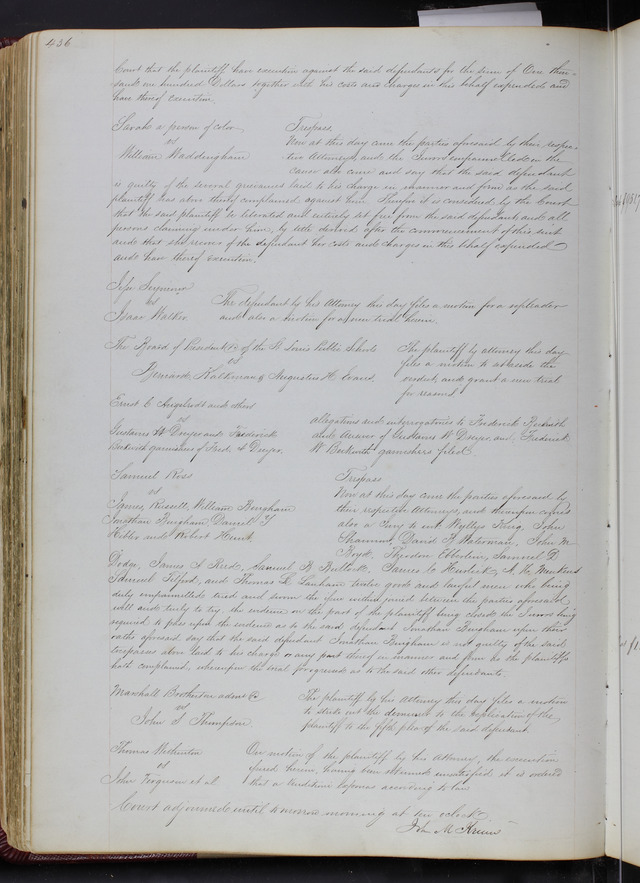 436
Court that the plaintiff have execution against the said defendants for the sum of One thou-
sand one hundred Dollars together with his costs and charges in this behalf expended and
have thereof execution.
Sarah a person of color
vs
William Waddingham
Trespass
Now at this day come the parties aforesaid by their respec-
tive Attorneys, and the Jurors empannelled in the
cause also come and say that the said defendant
is guilty of the several grievances laid to his charge in manner and form as the said
plaintiff has above thereof complained against him. Therefore it is considered by the Court
that the said plaintiff be liberated and entirely set free from the said defendant, and all
persons claiming under him, by title derived after the commencement of this suit
and that she recover of the defendant her costs and charges in this behalf expended
and have thereof execution.
Seymour
vs
Isaac Walker
The defendant by his Attorney this day files a motion for a repleader
and also a motion for a new trial herein.
The Board of President &c of the St Louis Public Schools
vs
& Augustus H. Evans
The plaintiff by attorney this day
files a motion to set aside the
verdict, and grant a new trial
for reasons
Ernst C. and others
vs
Gustavus W Dreyer and Frederick
garnishees of Fred. A Dreyer.
allegations and interrogatories to Frederick
and answer of Gustavus W Dreyer and Frederick
W garnishees filed.
Samuel Ross
vs
James Russell, William Bingham
Jonathan Bingham, Daniel Y
and Robert Hunt
Trespass
Now at this day come the parties aforesaid by
their respective Attorneys, and thereupon comes
also a Jury to wit, Wyllys King, John
David H. Waterman, John M
Theodore Samuel G.
James A Samuel B Bullock, James C A. W.
Samuel Telford, and Thomas L. Lanham twelve good and lawful men who being
duly empannelled tried and sworn the issue within joined between the parties aforesaid
well and truly to try the evidence on the part of the plaintiff being closed, the Jurors being
required to pass upon the evidence as to the said defendant Jonathan Bingham upon their
oaths aforesaid say that the said defendant Jonathan Bingham is not guilty of the said
trespasses above laid to his charge or any part thereof in manner and form as the plaintiff
hath complained, whereupon the trial progressed as to the said other defendants.
Marshall Brotherton admr &c
vs
John S Thompson
The plaintiff by his Attorney this day files a motion
to strike out the demurrer to the replication of the
plaintiff to the fifth plea of the said defendant
Thomas
vs
John Ferguson et al
On motion of the plaintiff by his Attorney, the execution
issued herein, having been returned unsatisfied, it is ordered
that a venditioni exponas according to law
Court adjourned until tomorrow morning at ten oclock
John M Krum